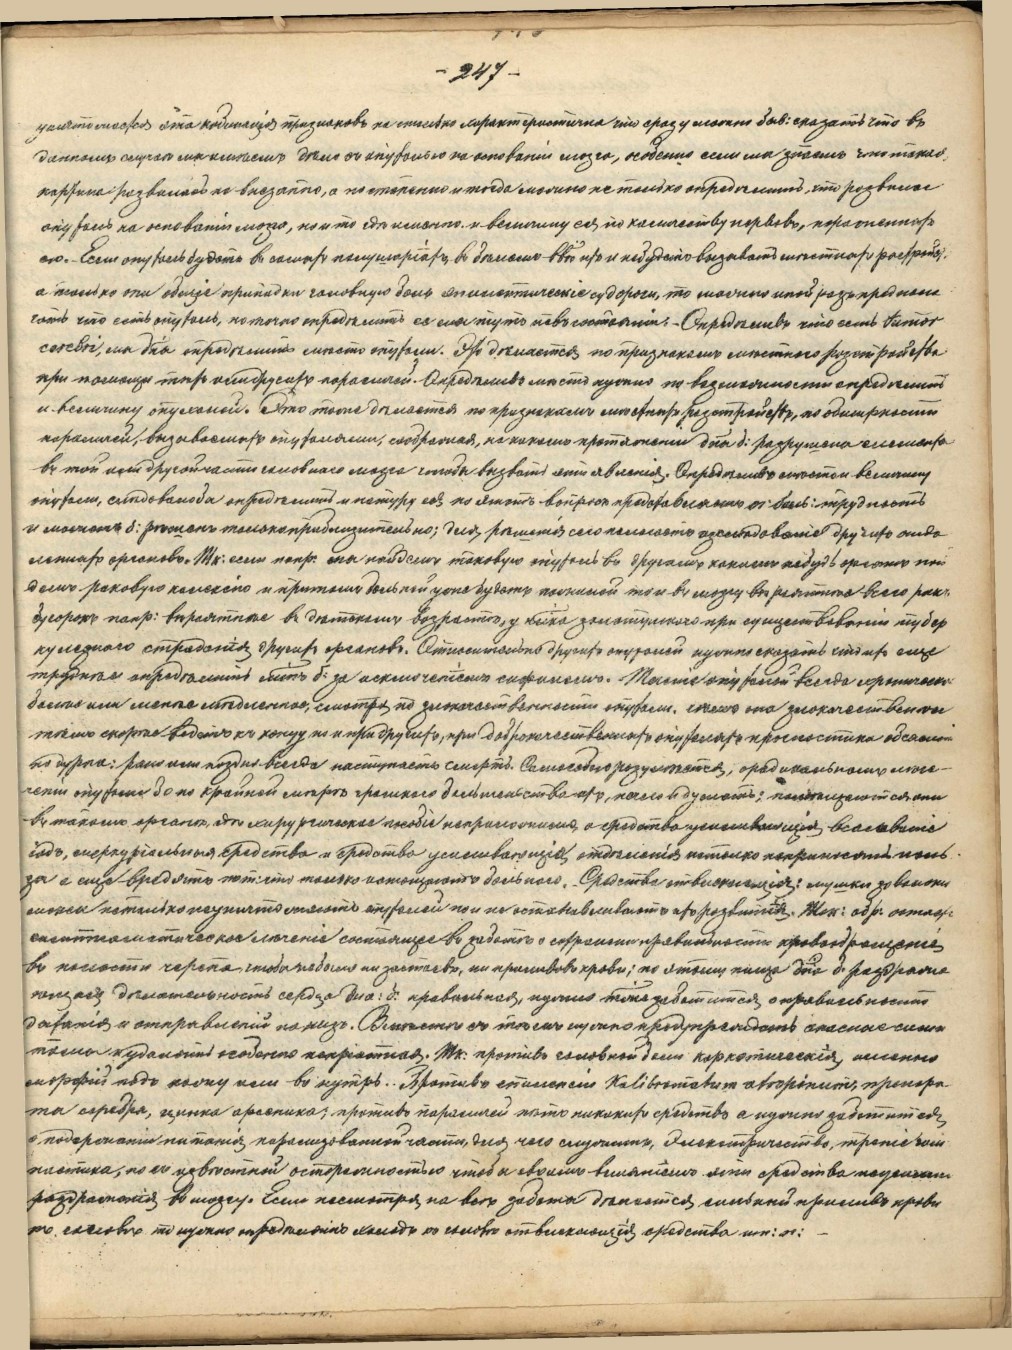 - 247 -
эта комбинація признаковъ на столько характеристична что сразу можно быв: сказать что въ
данномъ случаѣ мы имѣемъ дѣло съ опухолью на основаніи мозга, особенно если мы знаемъ что такая
картина развилась не внезапно, а постепенно и тогда можно не только опредѣлить, что развилась
опухоль на основаніи мозга, но и то гдѣ именно и величину ея по количеству нервовъ, пораженныхъ
ею. - Если опухоль будетъ въ самыхъ полушаріяхъ въ бѣломъ в-вѣ ихъ и не будетъ вызывать мѣстныхъ разстройс.
а только общіе припадки головную боль эпилептическіе судороги, то можно иной разъ предпола
гать что есть опухоль, но точно опредѣлить ее мѣсто тутъ невозможно. - Опредѣливъ что есть tumor
cerebri, мы д. опредѣлить мѣсто опухоли. Это дѣлается по признакамъ мѣстнаго разстройства
при помощи тѣхъ или другихъ параличей. Опредѣливъ мѣсто нужно по возможности опредѣлить
и величину опухолей. Это тоже дѣлается по признакамъ мѣстныхъ разстройствъ, по обширности
параличей, вызываемыхъ опухолями, соображая, на какомъ протяженіи д. б: разрушена
въ той или другой части головнаго мозга чтобы вызвать эти явленія. Опредѣливъ мѣсто и величину
опухоли, слѣдовало бы опредѣлить и натуру ея но этотъ вопросъ представляетъ бол: трудность
и можетъ б: рѣшенъ только приблизительно; для рѣшенія его помогаетъ изслѣдованіе другихъ отда
ленныхъ органовъ. Тк: если напр. мы найдемъ таковую опухоль въ другомъ какомъ нибудь органѣ
раковую и притомъ больной уже будетъ пожилой то и въ мозгу вѣроятнѣе всего ракъ.
бугорокъ напр: вѣроятнѣе въ дѣтскомъ возрастѣ, у золотушнаго при существованіи тубер
кулезнаго страданія другихъ органовъ. Относительно другихъ опухолей нужно сказать что ихъ еще
труднѣе опредѣлить за исключеніемъ сифиломъ. Теченіе опухолей всегда хроническ.
болѣе или менѣе медленное, смотря по злокачественности опухоли. чѣмъ она злокачественнѣе
тѣмъ скорѣе ведетъ къ концу но и при другихъ, при доброкачественныхъ опухоляхъ прогностика
дурна: рано или поздно всегда наступаетъ смерть. Само собою разумѣется, о радикальномъ лѣче-
ніи опухоли по крайней мѣрѣ громаднаго большинства ихъ, нечего и думать; помѣщаются они
въ такомъ органѣ, гдѣ хирургическое пособіе непримѣнимо, а средства усиливающія всасываніе
іодъ, меркуріальныя средства и средства усиливающія отдѣленія не только не приносятъ поль
зы а еще вредятъ тѣмъ что только истощаютъ больного. Средства отвлекающія: мушки заволоки
не только не уничтожаютъ опухолей но и не останавливаютъ ихъ развитія. Тк: обр. остает.
симптоматическое лѣченіе состоящее въ заботѣ о сохраненіи правильности кровообращенія
въ полости черепа, чтобы не было ни застоевъ, ни приливовъ крови; по этому пища д. б.
дѣятельность сердца д. б. правильная, нужно также заботиться о правильности
дыханія и отправленій на низъ. Вмѣстѣ съ тѣмъ нужно предупреждать опасные симп
томы и удалять особенно непріятные. Тк: противъ головной боли наркотическія, именно
морфій подъ кожу или во нутрь. - Противъ эпилепсіи Kali bromatum atropinum, препара
ты серебра, цинка арсеника; противъ параличей нѣтъ никакихъ средствъ а нужно заботиться
о подержаніи питанія парализованной части, для чего служатъ, электричество, треніе гим
настика, но съ извѣстной осторожностью чтобы своимъ вліяніемъ эти средства не усилили
раздраженія въ мозгу. Если несмотря на всѣ заботы дѣлается сильный приливъ крови
къ головѣ то нужно опредѣлить холодъ на голову отвлекающія средства и т: п: -